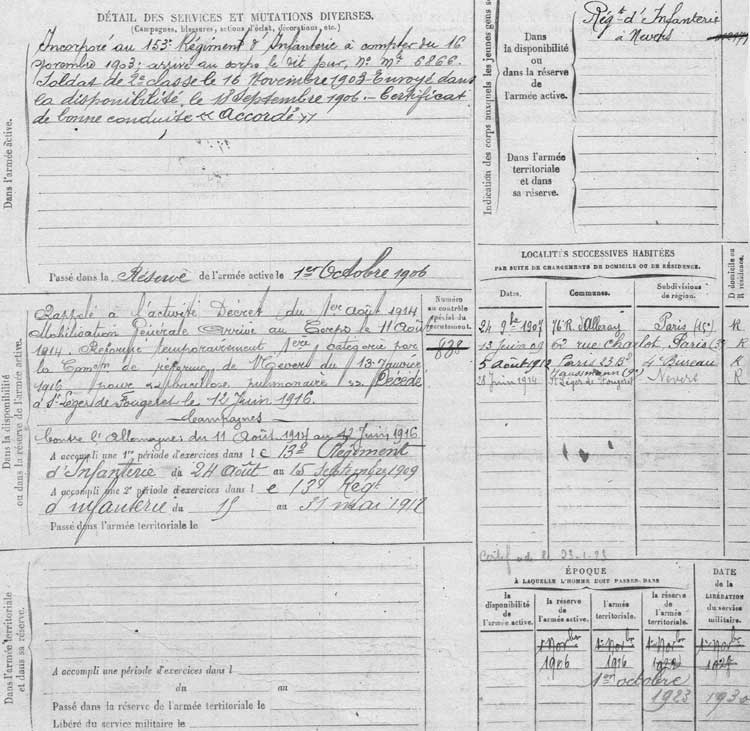 DÉTAIL DES SERVICES ET MUTATIONS DIVERSES.
(Campagnes, blessures, actions d'éclat, décorations, etc.)
Dans l'armée active.
Incorporé au 153e Régiment d'Infanterie à compter du 16
novembre 1903; arrivé au corps le dit jour, no Mle 6866.
Soldat de 2e classe le 16 Novembre 1903. Envoyé dans
la disponibilité, le 18 Septembre 1906.- Certificat
de bonne conduite « Accordé »
Passé dans la Réserve de l'armée active le 1er Octobre 1906
Dans la disponibilité
ou dans la réserve de l'armée active.
Rappelé à l'activité Décret du 1er août 1914
Mobilisation Générale Arrivé au Corps le 11 Août
1914. Réformé temporairement 1ère catégorie par
la Comon de réforme de Nevers du 13 Janvier
1916 pour « bacillose pulmonaire ». Décédé
à St Léger de Fougeret le 12 Juin 1916.
Campagnes
Contre l'Allemagne: du 11 Août 1914 au 12 Juin 1916
A accompli une 1re période d'exercices dans l e 13e Régiment
d'Infanterie du 24 Août au 15 Septembre 1909
A accompli une 2e période d'exercices dans l e 13e Régt
d'infanterie du 15 au 31 mai 1912
Passé dans l'armée territoriale le
Numéro
au contrôle
spécial du
recrutement.
838
Dans l'armée territoriale
et dans sa réserve.
A accompli une période d'exercices dans l
du au
Passé dans la réserve de l'armée territoriale le
Libéré du service militaire le
Indication des corps auxquels les jeunes gens
Dans
la disponibilité
ou dans la réserve
de l'armée active.
Régt d'Infanterie
à Nevers
Dans l'armée
territoriale
et dans
sa réserve.
LOCALITÉS SUCCESSIVES HABITÉES
PAR SUITE DE CHANGEMENTS DE DOMICILE OU DE RÉSIDENCE.
D domicile ou
R résidence.
Dates. Communes. Subdivisions
de région.
24 9bre 1907 76 R. d'Alleray Paris (15e) R
13 juin 09 62 rue Charlot Paris (3e)
5 août 1912 Paris 23 Bd 4e Bureau R
Haussmann (9e)
28 Juin 1914 St Léger de Fougeret Nevers R
ÉPOQUE
À LAQUELLE L'HOMME DOIT PASSER DANS
DATE
de la
LIBÉRATION
du service
militaire.
la
disponibilité
de
l'armée active.
la réserve
de
l'armée active.
l'armée
territoriale.
la réserve
de l'armée
territoriale.
1er Novbre 1er Novbre 1er Novbre 1er Novbre
1906 1916
1er octobre
1923 1930